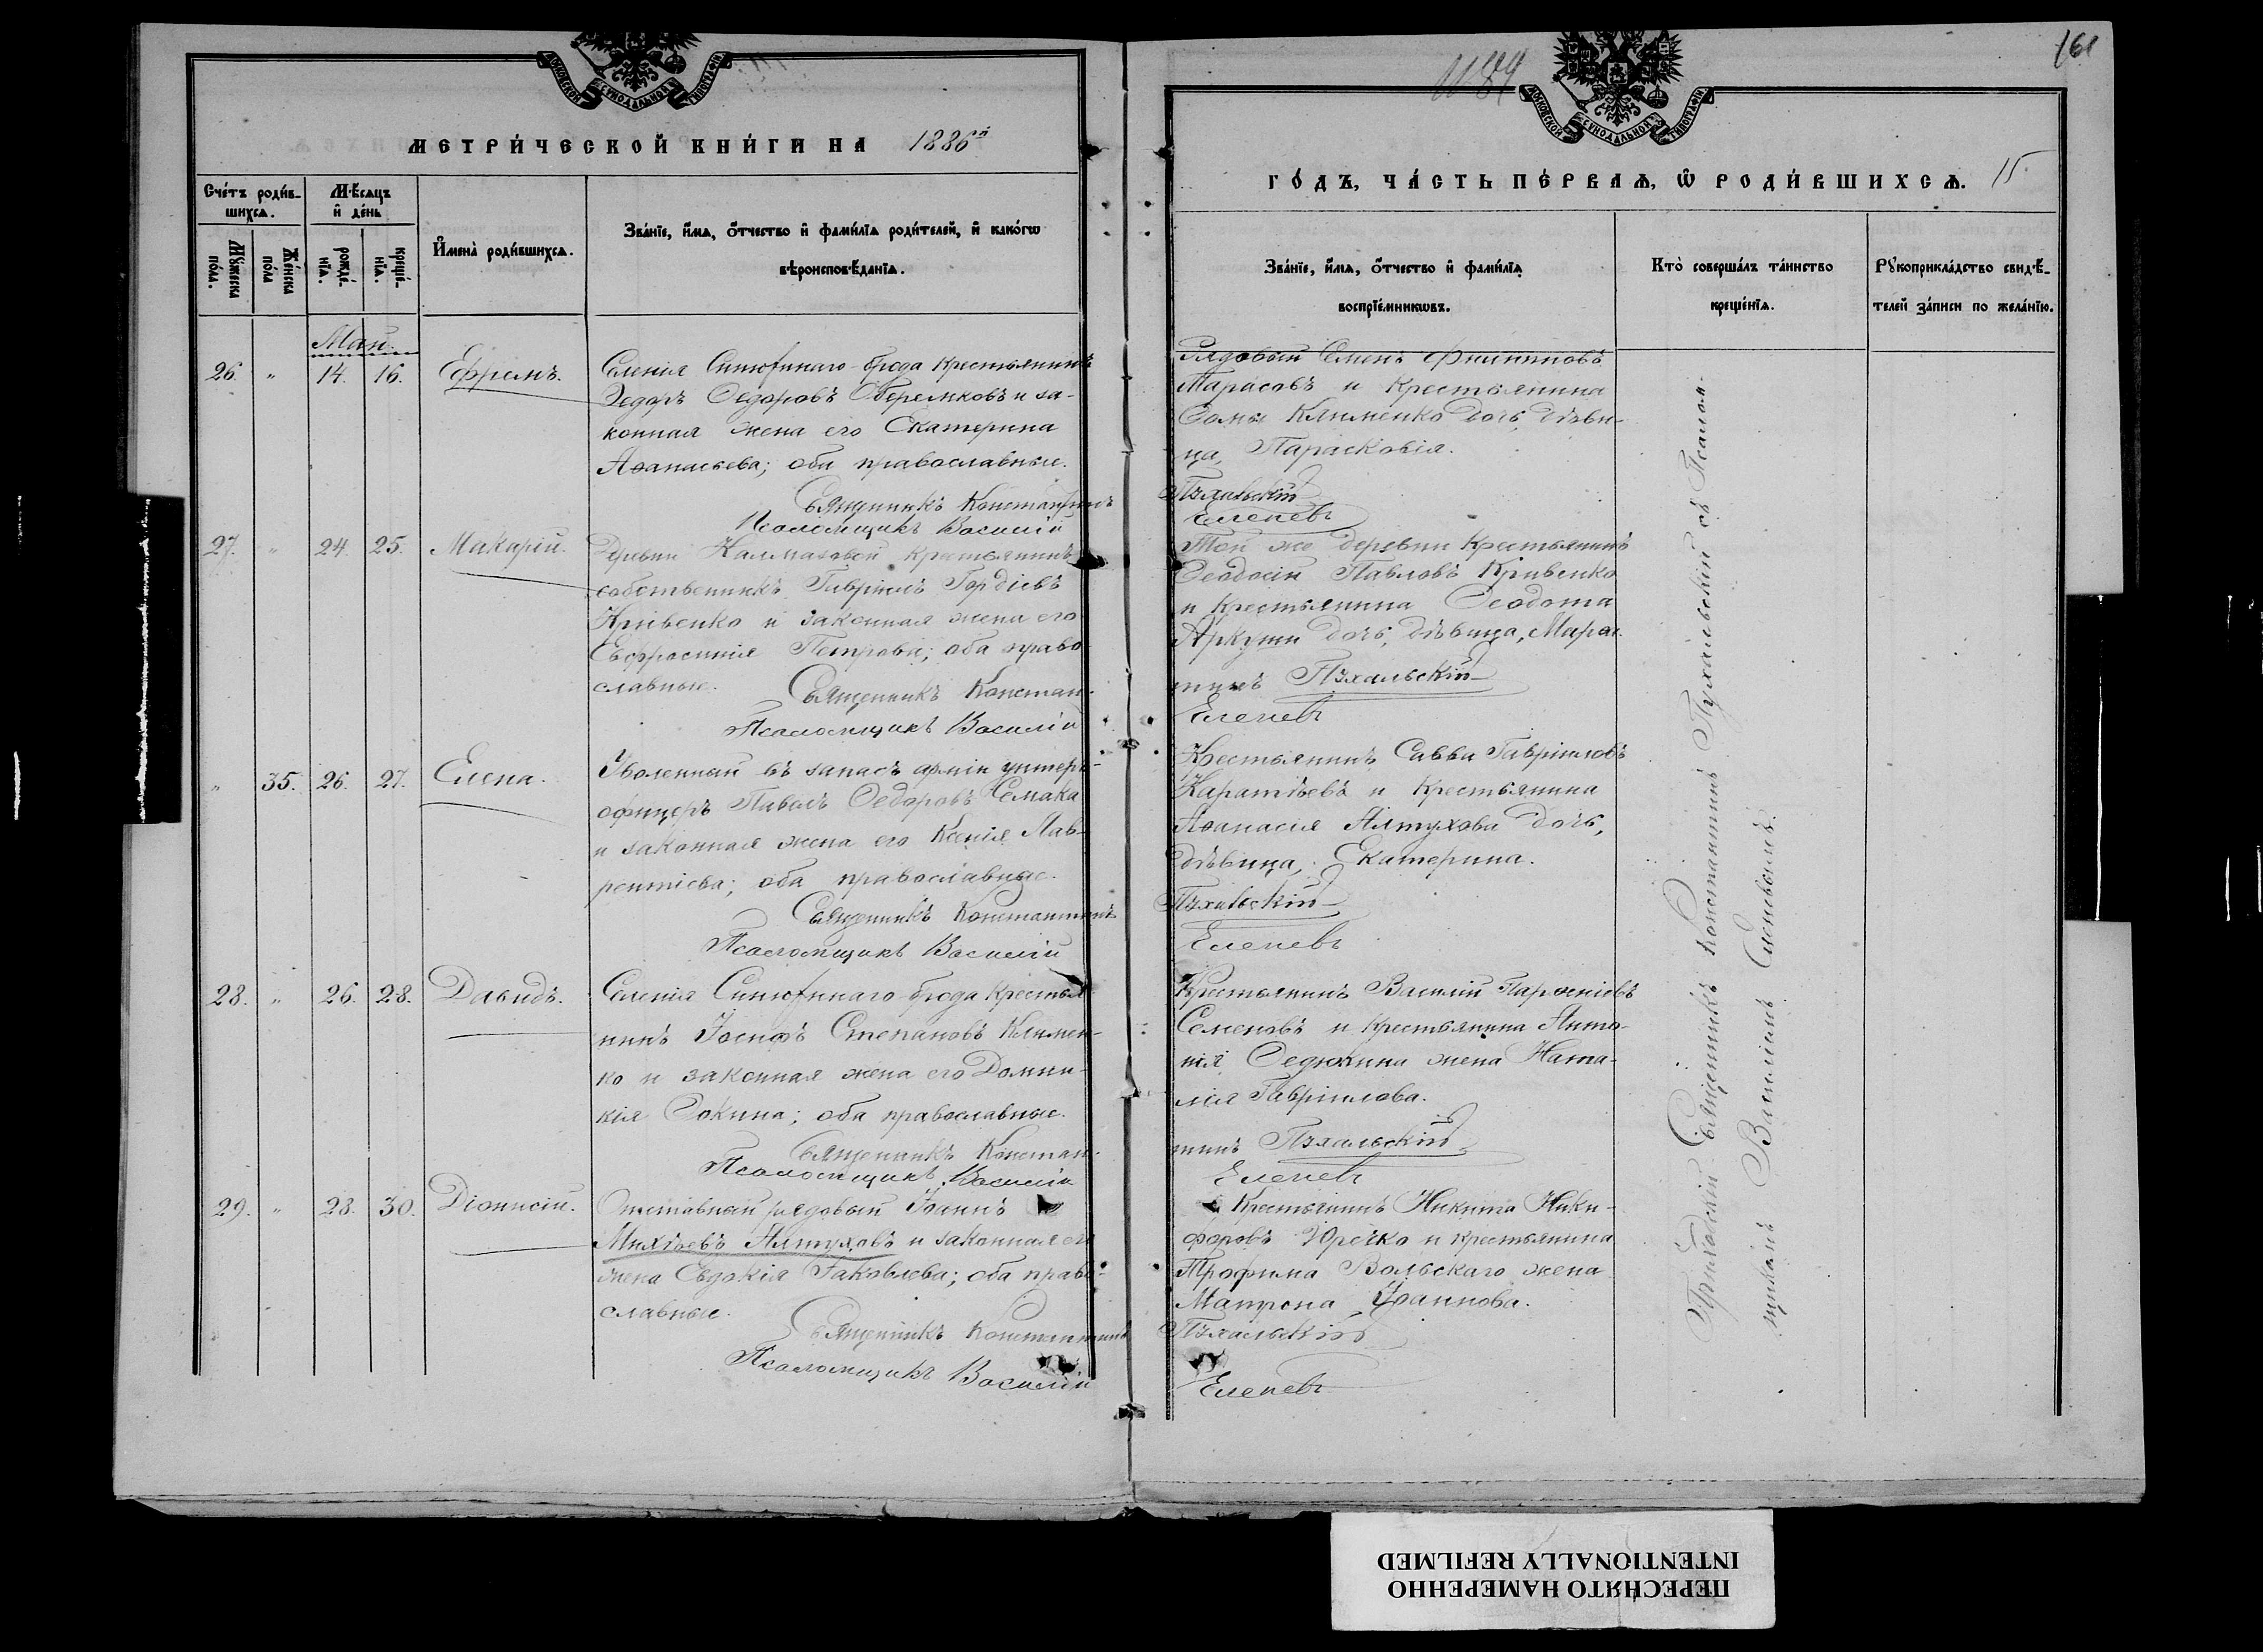 МОСКОВСКОЙ СѴНОДАЛЬНОЙ ТИПОГРАФІИ
МЕТРИ́ЧЕСКОЙ КНИ́ГИ НА 1886й
Сче́тъ роди́в-
шихсѧ.
Мꙋ́жеска по́ла.
Же́нска по́ла
Мѣ́сяцъ
и҆ де́нь
рожде́-
нїѧ.
креще́-
нїѧ.
И҆мена̀ роди́вшихсѧ.
Зва́нїе, и҆́мѧ, ѻ҆́тчество и҆ фами́лїѧ роди́телей, и҆ како́гѡ
вѣроисповѣ́данїѧ.
Май.
26. " 14. 16. Ефремъ.
Селенія Синюхинаго-брода крестьянинъ
Ѳедоръ Ѳедоровъ Оберемковъ и за-
конная жена его Екатерина
Аѳанасьева; оба православные.
Священникъ Константинъ
Псаломщикъ Василій
27. " 24. 25. Макарій.
Деревни Калмазовой крестьянинъ
собственникъ Гавріилъ Гордіевъ
Кривенко и законная жена его
Евфросинія Петрова; оба право-
славные.
Священникъ Констан-
Псаломщикъ Василій
" 35. 26. 27. Елена.
Уволенный въ запасъ арміи унтеръ-
офицеръ Павелъ Ѳедоровъ Семака
и законная жена его Ксенія Лав-
рентіева; оба православные.
Священникъ Константинъ
Псаломщикъ Василій
28. " 26. 28. Давидъ.
Селенія Синюхинаго брода крестья-
нинъ Іосифъ Степановъ Климен-
ко и законная жена его Домни-
кія Ѳокина; оба православные.
Священникъ Констан-
Псаломщикъ Василій
29. " 28. 30. Діонисій.
Отставный рядовый Іоаннъ
Михѣевъ Алтуховъ и законная его
жена Евдокія Іаковлева; оба право-
славные.
Священникъ Константинъ
Псаломщикъ Василій
161
МОСКОВСКОЙ СѴНОДАЛЬНОЙ ТИПОГРАФІИ
ГО́ДЪ, ЧА́СТЬ ПЕ́РВАѦ, Ѡ РОДИ́ВШИХСѦ. 15
Зва́нїе, и҆́мѧ, ѻ҆́тчество и҆ фами́лїѧ
воспрїе́мникѡвъ.
Кто̀ соверша́лъ та́инство
креще́нїѧ.
Рꙋкоприкла́дство свидѣ́-
телей за́писи по жела́нїю.
Рядовый Семенъ Филипповъ
Тарасовъ и крестьянина
Ѳомы Клименко дочь, дѣви-
ца, Парасковія.
Пухальскій
Еленевъ
Той же деревни крестьянинъ
Ѳеодосій Павловъ Кривенко
и крестьянина Ѳеодота
Аркуши дочь, дѣвица, Марѳа.
тинъ Пухальскій
Еленевъ
Крестьянинъ Савва Гавріиловъ
Каратѣевъ и крестьянина
Аѳанасія Алтухова дочь,
дѣвица, Екатерина.
Пухальскій
Еленевъ
Крестьянинъ Василій Парѳеніевъ
Семеновъ и крестьянина Анто-
нія Седюкина жена Ната-
лія Гавріилова.
тинъ Пухальскій
Еленевъ
Крестьянинъ Никита Ники-
форовъ Юречко и крестьянина
Трофима Вольскаго жена
Матрона Іоаннова.
Пухальскій
Еленевъ
Приходскій Священникъ Константинъ Пухальскій съ Псалом-
щикомъ Василіемъ Еленевымъ.
ПЕРЕСНЯТО НАМЕРЕННО
INTENTIONALLY REFILMED